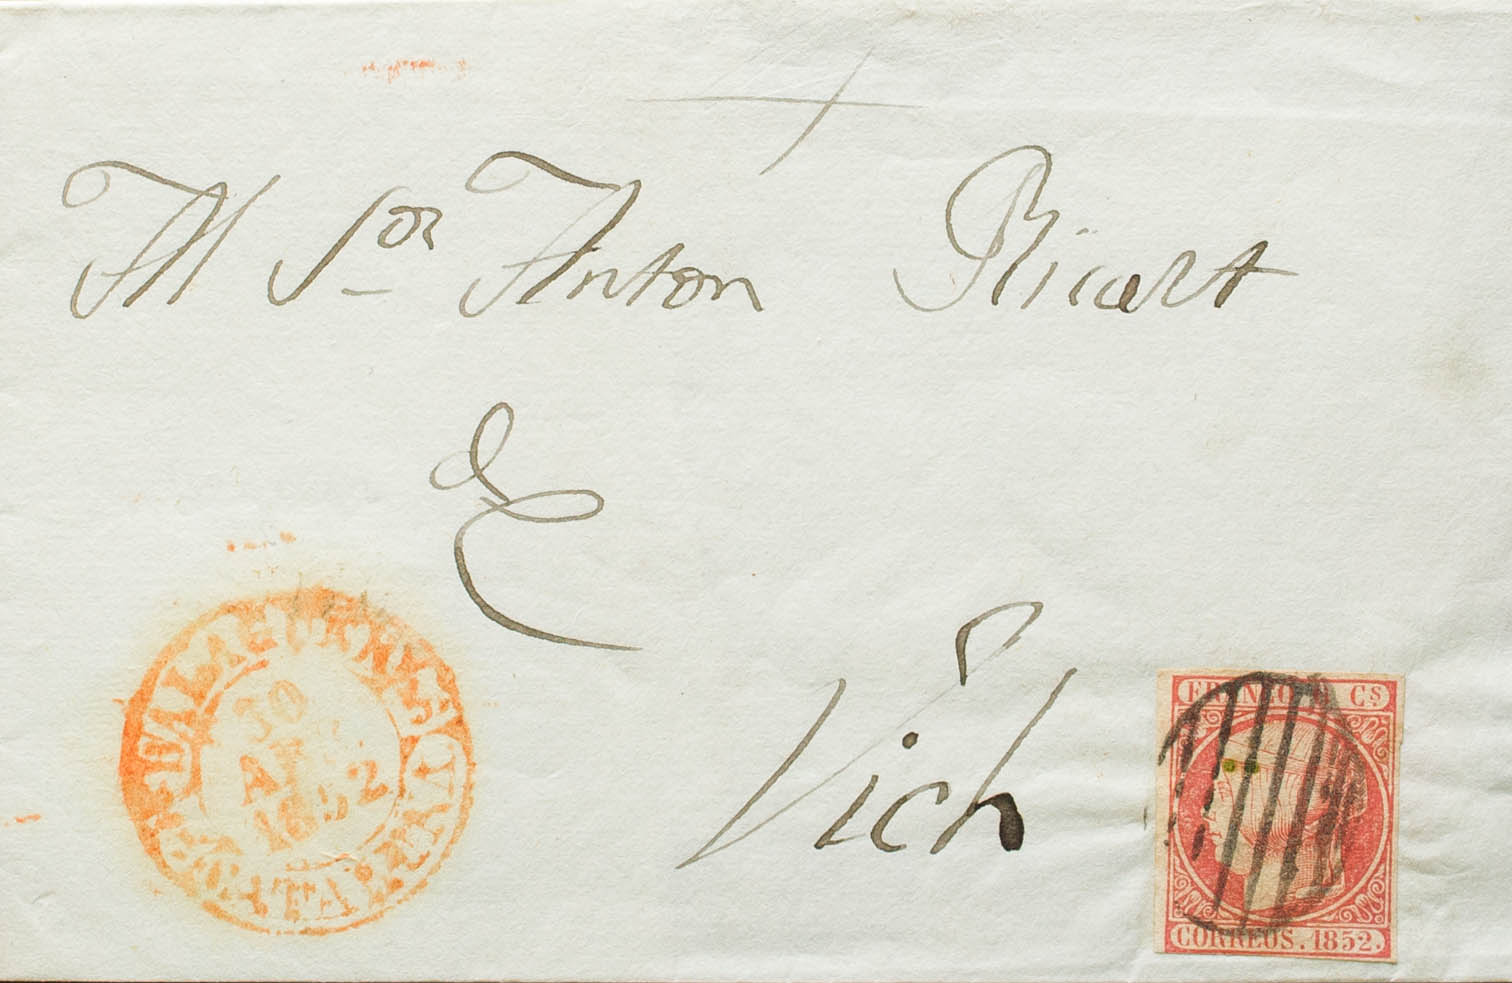 Al Sor Anton Ricart
Vich
30
AB
1852
FRANCO 6 Cs
CORREOS. 1852.